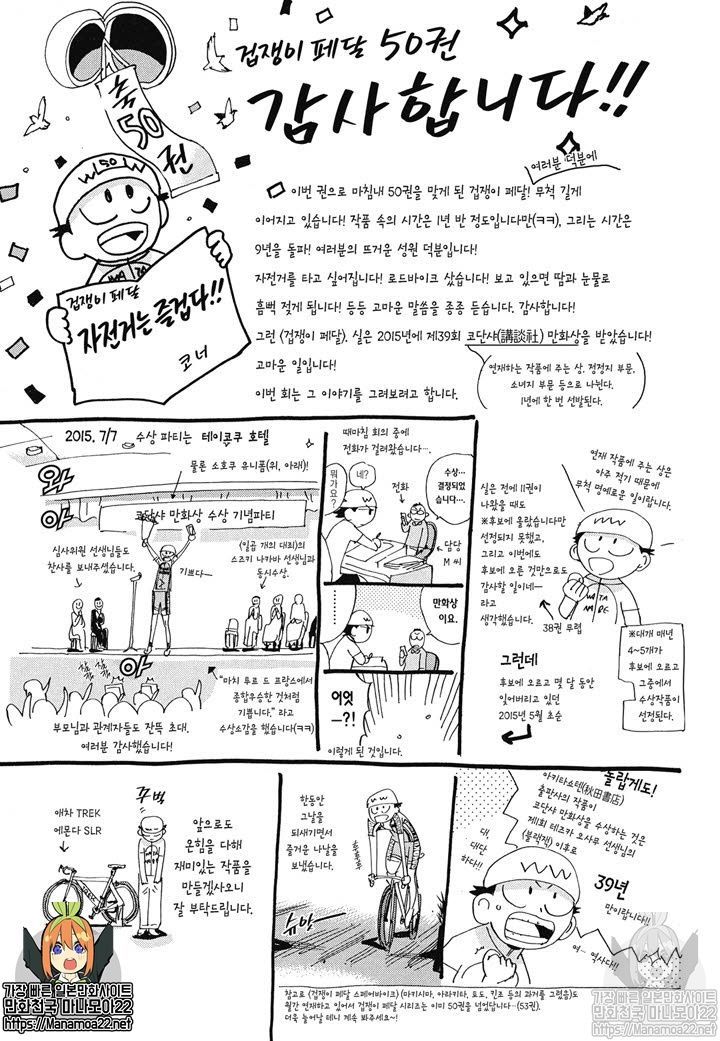 겁쟁이 페달 50권
감사합니다!!
축 50권
W 50 W
겁쟁이 페달
자전거는 즐겁다!!
코너
여러분 덕분에
이번 권으로 마침내 50권을 맞게 된 겁쟁이 페달! 무척 길게
이어지고 있습니다! 작품 속의 시간은 1년 반 정도입니다만(ㅋㅋ), 그리는 시간은
9년을 돌파! 여러분의 뜨거운 성원 덕분입니다!
자전거를 타고 싶어집니다! 로드바이크 샀습니다! 보고 있으면 땀과 눈물로
흠뻑 젖게 됩니다! 등등 고마운 말씀을 종종 듣습니다. 감사합니다!
그런 〈겁쟁이 페달〉. 실은 2015년에 제39회 코단샤(講談社) 만화상을 받았습니다!
고마운 일입니다!
이번 회는 그 이야기를 그려보려고 합니다.
연재하는 작품에 주는 상, 청정지 부문,
소녀지 부문 등으로 나뉜다.
1년에 한 번 선발된다.
연재 작품에 주는 상은
아주 적기 때문에
무척 명예로운 일이랍니다.
실은 전에 11권이
나왔을 때도
※후보에 올랐습니다만
선정되지 못했고,
그리고 이번에도
후보에 오른 것만으로도
감사할 일이네―
라고
생각했습니다.
38권 무렵
WATA
NABE
※대개 매년
4~5개가
후보에 오르고
그중에서
수상작품이
선정된다.
그런데
후보에 오르고 몇 달 동안
잊어버리고 있던
2015년 5월 초순
때마침 회의 중에
전화가 걸려왔습니다….
뭐가요?
네?
전화
수상…
결정되었
습니다….
담당
M 씨
……
만화상
이요.
이엇
―?!
이렇게 된 것입니다.
2015. 7/7 수상 파티는 테이코쿠 호텔
물론 소호쿠 유니폼(위, 아래)!
와
아
코단샤 만화상 수상 기념파티
심사위원 선생님들도
찬사를 보내주셨습니다.
기쁘다―
〈일곱 개의 대죄〉의
스즈키 나카바 선생님과
동시수상.
아
"마치 투르 드 프랑스에서
종합우승한 것처럼
기쁩니다." 라고
수상소감을 했습니다(ㅋㅋ)
부모님과 관계자들도 잔뜩 초대.
여러분 감사했습니다!
놀랍게도!
아키타쇼텐(秋田書店)
출판사의 작품이
코단샤 만화상을 수상하는 것은
제1회 테즈카 오사무 선생님의
〈블랙잭〉 이후로
39년
만이랍니다!!
대,
대단
하다!!
여― 역사다!!
한동안
그날을
되새기면서
즐거운 나날을
보냈습니다.
후후후
슈앙―
참고로 〈겁쟁이 페달 스페어바이크〉 (마키시마, 아라키타, 토도, 킨조 등의 과거를 그렸음)도
월간 연재하고 있어서 겁쟁이 페달 시리즈는 이미 50권을 넘었답니다…(53권).
더욱 늘어날 테니 계속 봐주세요~!
꾸벅
애차 TREK
에몬다 SLR
앞으로도
온힘을 다해
재미있는 작품을
만들겠사오니
잘 부탁드립니다.
가장 빠른 일본만화사이트
만화천국 마나모아22
https://Manamoa22.net
가장 빠른 일본만화사이트
만화천국 마나모아22
https://Manamoa22.net